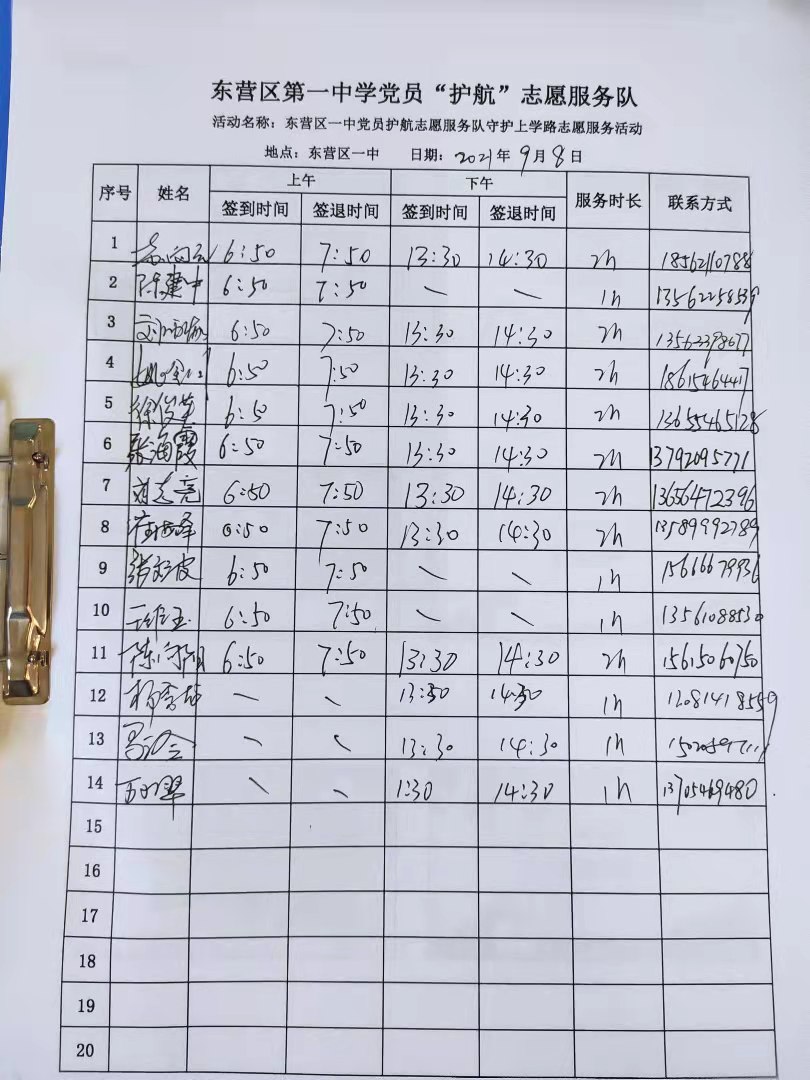 东营区第一中学党员“护航”志愿服务队
活动名称：东营区一中党员护航志愿服务队守护上学路志愿服务活动
地点：东营区一中 日期：2021年9月8日
序号 姓名 上午 下午 服务时长 联系方式
签到时间 签退时间 签到时间 签退时间
1 6:50 7:50 13:30 14:30 2h 18562110788
2 陈建中 6:50 7:50 — — 1h 13562258539
3 6:50 7:50 13:30 14:30 2h
4 6:50 7:50 13:30 14:30 2h 18615464417
5 6:50 7:50 13:30 14:30 2h 13655465128
6 张海霞 6:50 7:50 13:30 14:30 2h 13792095771
7 刘志亮 6:50 7:50 13:30 14:30 2h 13656472396
8 6:50 7:50 13:30 14:30 2h 13589992789
9 6:50 7:50 — — 1h 15666679936
10 6:50 7:50 — — 1h 13561088530
11 6:50 7:50 13:30 14:30 2h 15615060750
12 — — 13:30 14:30 1h
13 — — 13:30 14:30 1h
14 — — 1:30 14:30 1h 13705469480
15
16
17
18
19
20